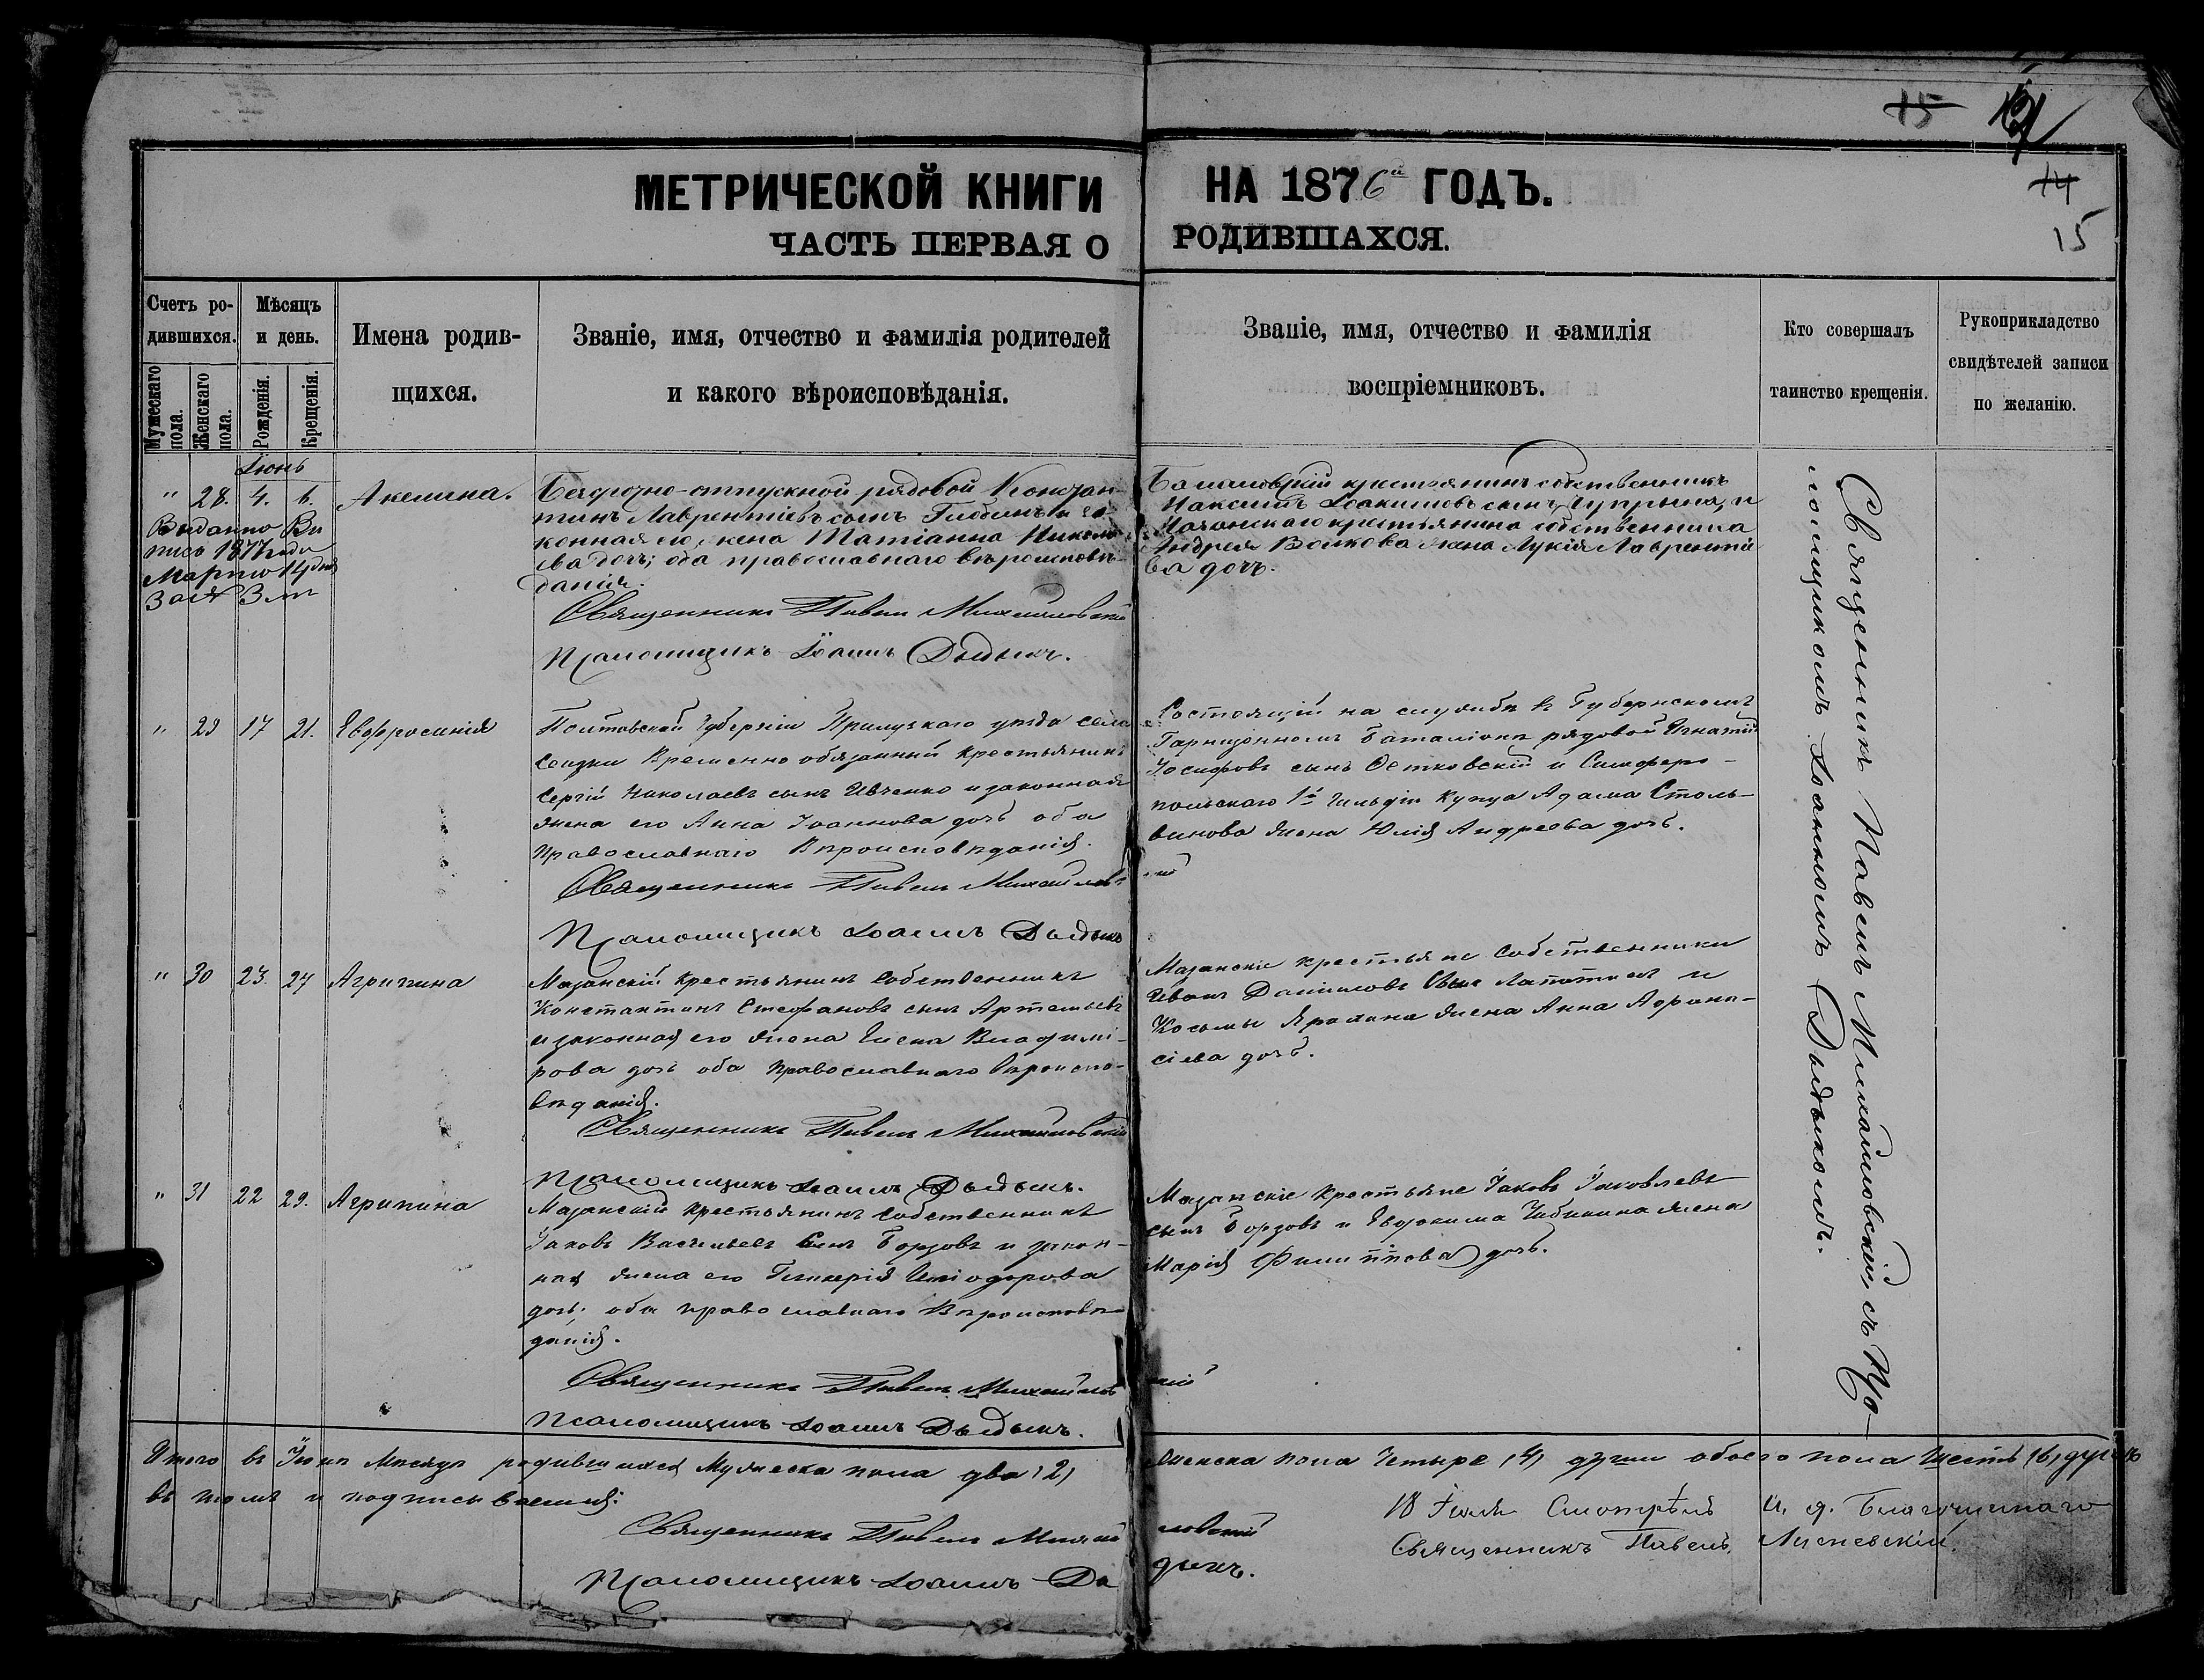 15
14
15
МЕТРИЧЕСКОЙ КНИГИ НА 1876й ГОДЪ.
ЧАСТЬ ПЕРВАЯ О РОДИВШАХСЯ.
Счетъ родившихся.
Мужескаго пола.
Женскаго пола.
Мѣсяцъ и день.
Рожденія.
Крещенія.
Имена родив-
щихся.
Званіе, имя, отчество и фамилія родителей
и какого вѣроисповѣданія.
Званіе, имя, отчество и фамилія
воспріемниковъ.
Кто совершалъ
таинство крещенія.
Рукоприкладство
свидѣтелей записи
по желанію.
Іюнь
" 28. 4. 6. Акелина.
Выданно Вы
пись 1877 года
Марта 14 дня
За № 3 м
Безсрочно-отпускной рядовой Констан-
тинъ Лаврентіевъ сынъ и за-
конная его жена Татіанна Никола
ева дочь; оба православнаго вѣроисповѣ-
данія.
Священникъ Павелъ Михайловскій
Псаломщикъ Іоаннъ Дыдыкъ.
крестьянинъ собственникъ
Максимъ Іоакимовъ сынъ и
Мазанскаго крестьянина собственника
Андрея Волкова жена Лукія Лаврентіе
ва дочь.
" 29 17 21. Евфросинія
Полтавской Губерніи Прилуцкаго уѣзда села
Временно обязанный крестьянинъ
Сергій Николаевъ сынъ Ивченко и законная
жена его Анна Іоаннова дочь оба
Православнаго Вѣроисповѣданія.
Священникъ Павелъ Михайловскій
Псаломщикъ Іоаннъ Дыдыкъ
Состоящій на службѣ в Губернскомъ
Гарнизонномъ Баталіонѣ рядовой Игнатій
Іосифовъ сынъ и Симферо-
польскаго 1й Гильдіи Купца Адама Столь-
винова жена Юлія Андреева дочь.
" 30 23. 27 Агрипина
Мазанскій Крестьянинъ Собственникъ
Константинъ Стефановъ сынъ Артемьевъ
и законная его жена Елена Владимі-
рова дочь оба Православнаго Вѣроиспо-
вѣданія.
Священникъ Павелъ Михайловскій
Псаломщикъ Іоаннъ Дыдыкъ.
Мазанскіе крестьяне Собственники
Иванъ Даниловъ Сынъ Лапотинъ и
Косьмы жена Анна
сіева дочь.
" 31 22 29. Агрипина
Мазанскій Крестьянинъ Собственникъ
Іаковъ Васильевъ Сынъ Борзовъ и закон-
ная жена его Гликерія Иліодорова
дочь; оба православнаго Вѣроисповѣ-
данія.
Священникъ Павелъ Михайловскій
Псаломщикъ Іоаннъ Дыдыкъ.
Мазанскіе крестьяне Іаковъ Іаковлевъ
сынъ Борзовъ и Евдокима жена
Марія Филиппова дочь.
Священникъ Павелъ Михайловскій съ Пса-
ломщикомъ Іоанномъ Дыдыкомъ.
Итого въ Іюнѣ Мѣсяцѣ родившихся Мужеска пола два (2) женска пола Четыре (4) души обоего пола Шесть (6) душъ
въ томъ и подписываемся:
Священникъ Павелъ Михайловскій
Псаломщикъ Іоаннъ Дыдыкъ.
18 Іюля Смотрѣлъ И. д. Благочиннаго
Священникъ Павелъ